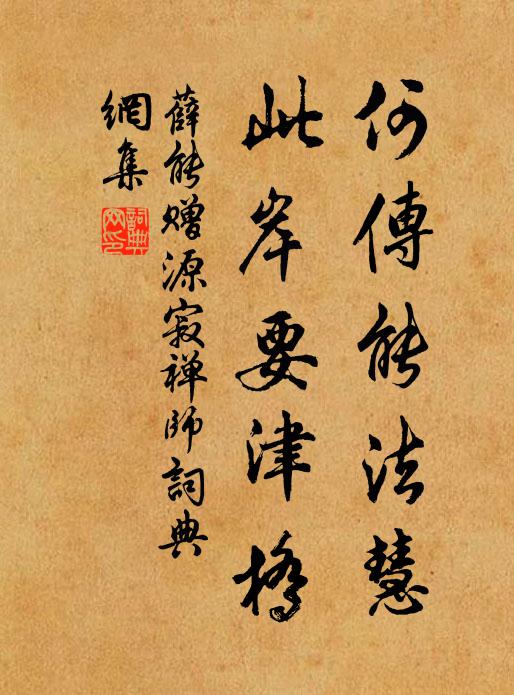 何傳能法慧
此岸要津橋
薛能贈源寂禅師詞典
網集
詞典
网印